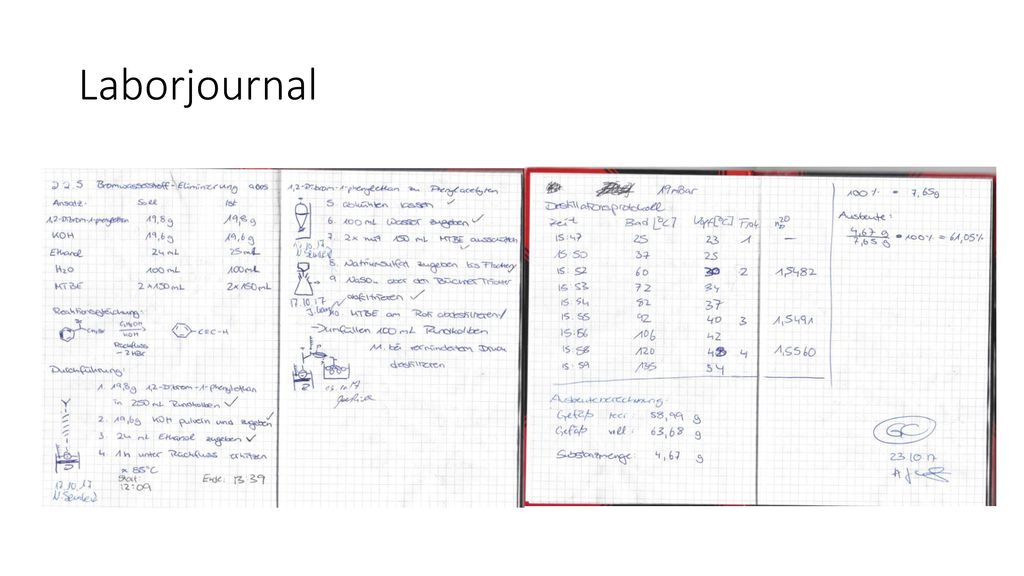 Laborjournal
2.2.5 Bromwasserstoff-Eliminierung aus
Ansatz: Soll Ist
1,2-Dibrom-1-phenylethan 19,8g 19,8g
KOH 19,6g 19,6g
Ethanol 24mL 25mL
H2O 100mL 100mL
MTBE 2×150mL 2×150mL
Reaktionsgleichung:
C2H5OH
KOH
Rückfluss
- 2 HBr
-C≡C-H
Durchführung:
1. 19,8g 1,2-Dibrom-1-phenylethan
in 250 mL Rundkolben ✓
2. 19,6g KOH pulvern und zugeben ✓
3. 24 mL Ethanol zugeben ✓
4. 1h unter Rückfluss erhitzen
≈ 85°C
Start: 12:09 Ende: 13 39
17.10.17
1,2-Dibrom-1-phenylethan zu Phenylacetylen
5. abkühlen lassen ✓
6. 100 mL Wasser zugeben ✓
7. 2x mit 150 mL MTBE ausschütteln ✓
17.10.17
8. Natriumsulfat zugeben bis
9. über den Büchner Trichter
abfiltrieren ✓
17.10.17
10. MTBE am Roti abdestillieren/
→ umfüllen 100 mL Rundkolben
11. bei vermindertem Druck
destillieren
19mBar
Destillationsprotokoll
Zeit Bad [°C] Kopf[°C] Frak n 20 D
15:47 25 23 1 —
15:50 37 25
15:52 60 30 2 1,5482
15:53 72 34
15:54 82 37
15:55 92 40 3 1,5491
15:56 106 42
15:58 120 48 4 1,5560
15:59 135 54
Ausbeuteberechnung:
Gefäß leer: 58,99 g
Gefäß voll: 63,68 g
Substanzmenge: 4,67 g
100% = 7,65g
Ausbeute:
4,67 g / 7,65 g • 100% = 61,05%
GC
23.10.17